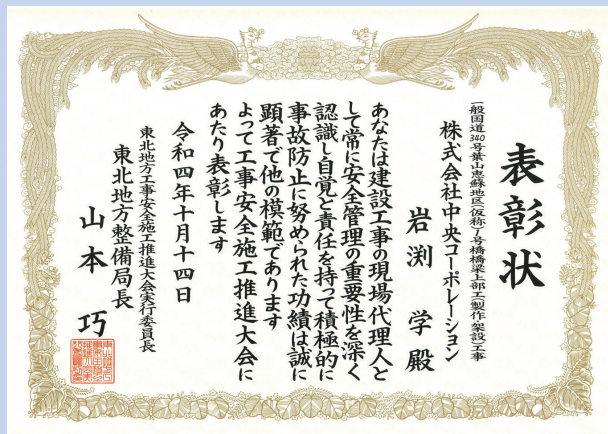 表彰状
一般国道340号葉山恵蘇地区(仮称)1号橋橋梁上部工製作架設工事
株式会社中央コーポレーション
岩渕 学 殿
あなたは建設工事の現場代理人と
して常に安全管理の重要性を深く
認識し自覚と責任を持って積極的に
事故防止に努められた功績は誠に
顕著で他の模範であります
よって工事安全施工推進大会に
あたり表彰します
令和四年十月十四日
東北地方工事安全施工推進大会実行委員長
東北地方整備局長
山本 巧